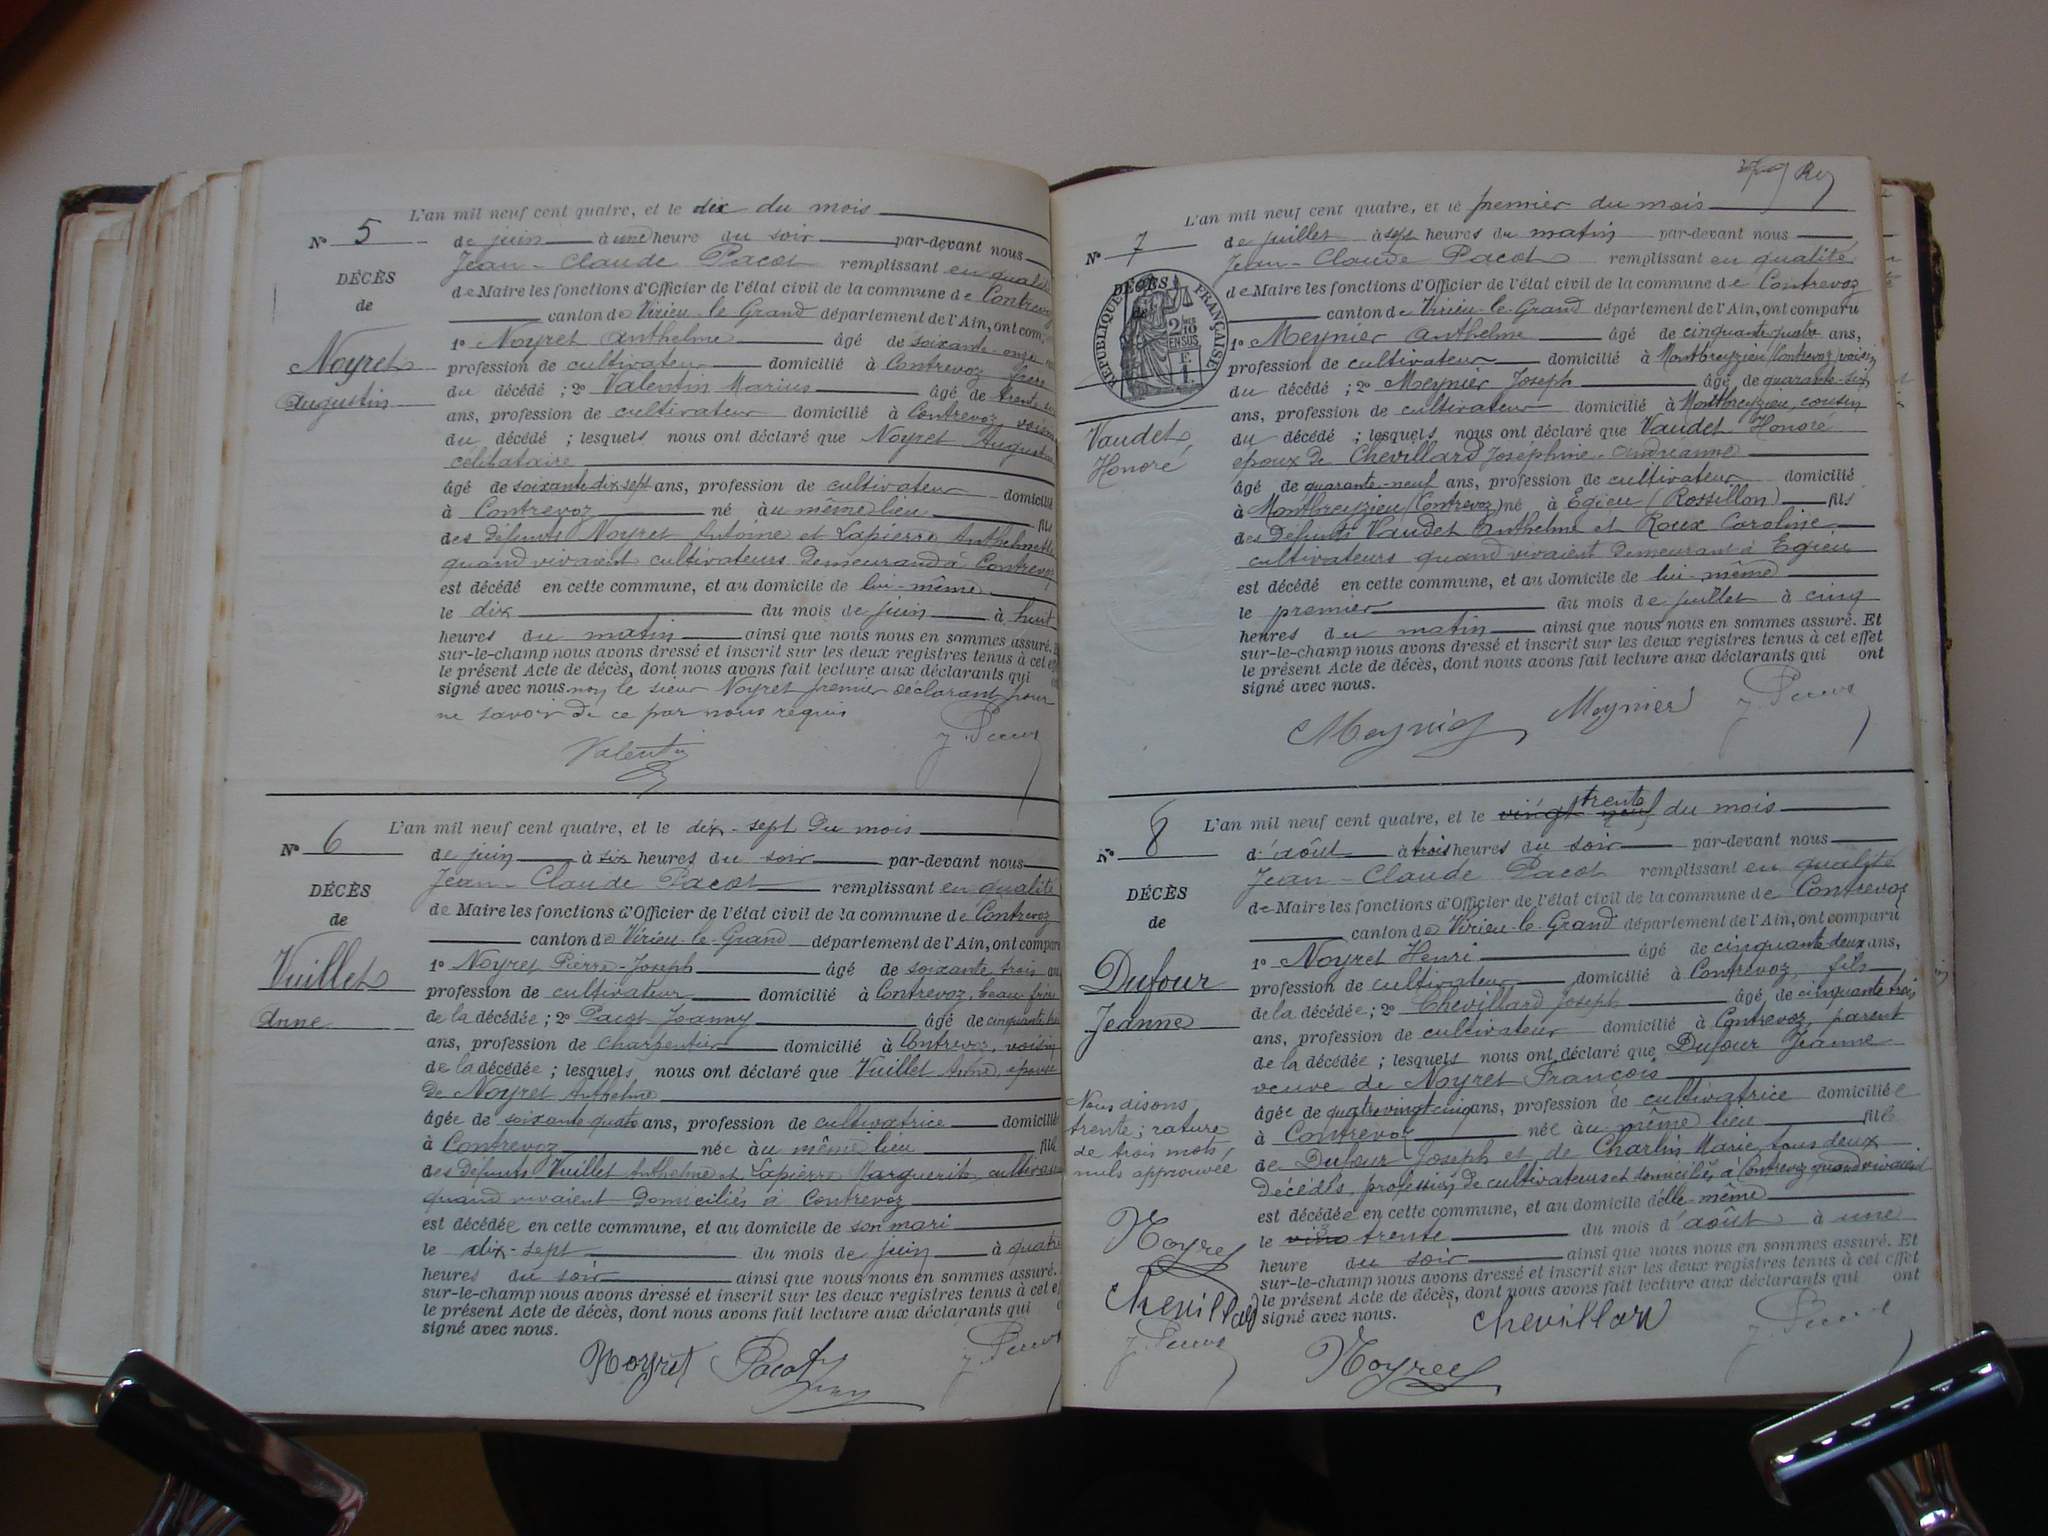 L'an mil neuf cent quatre, et le dix du mois
N° 5
de juin à une heure du soir par-devant nous
Jean-Claude Pacot remplissant en qualité
DÉCÈS
de Maire les fonctions d'Officier de l'état civil de la commune de Contrevoz
de
canton de Virieu-le-Grand département de l'Ain, ont com
1° Noyret Anthelme âgé de soixante-onze
Noyret
profession de cultivateur domicilié à Contrevoz, frère
Augustin
du décédé ; 2° Valentin Marius âgé de trente-six
ans, profession de cultivateur domicilié à Contrevoz, voisin
du décédé ; lesquels nous ont déclaré que Noyret Augustin
célibataire
âgé de soixante dix sept ans, profession de cultivateur domicilié
à Contrevoz né au même lieu fils
des défunts Noyret Antoine et Lapierre Anthelmette
quand vivaient cultivateurs demeurand à Contrevoz,
est décédé en cette commune, et au domicile de lui-même
le dix du mois de juin à huit
heures du matin ainsi que nous nous en sommes assuré. E
sur-le-champ nous avons dressé et inscrit sur les deux registres tenus à cet ef
le présent Acte de décès, dont nous avons fait lecture aux déclarants qui
signé avec nous. non le sieur Noyret premier déclarant pour
ne savoir de ce par nous requis
Valentin
J. Pacot
L'an mil neuf cent quatre, et le dix-sept du mois
N° 6
de juin à six heures du soir par-devant nous
Jean-Claude Pacot remplissant en qualité
DÉCÈS
de Maire les fonctions d'Officier de l'état civil de la commune de Contrevoz
de
canton de Virieu-le-Grand département de l'Ain, ont comparu
Vuillet
1° Noyret Pierre-Joseph âgé de soixante trois ans
profession de cultivateur domicilié à Contrevoz, beau-frère
Anne
de la décédée ; 2° Pacot Joanny âgé de cinquante
ans, profession de charpentier domicilié à Contrevoz, voisin
de la décédée ; lesquels nous ont déclaré que Vuillet Anne, épouse
de Noyret Anthelme
âgée de soixante quatre ans, profession de cultivatrice domiciliée
à Contrevoz née au même lieu fille
des défunts Vuillet Anthelme et Lapierre Marguerite, cultivateurs
quand vivaient domiciliés à Contrevoz
est décédée en cette commune, et au domicile de son mari
le dix-sept du mois de juin à quatre
heures du soir ainsi que nous nous en sommes assuré.
sur-le-champ nous avons dressé et inscrit sur les deux registres tenus à cet ef
le présent Acte de décès, dont nous avons fait lecture aux déclarants qui
signé avec nous.
Noyret Pacot J. Pacot
L'an mil neuf cent quatre, et le premier du mois
N° 7
de juillet à sept heures du matin par-devant nous
Jean-Claude Pacot remplissant en qualité
DÉCÈS
de
RÉPUBLIQUE FRANÇAISE
2/10 EN SUS
1 F.
de Maire les fonctions d'Officier de l'état civil de la commune de Contrevoz
canton de Virieu-le-Grand département de l'Ain, ont comparu
1° Meynier Anthelme âgé de cinquante-quatre ans,
profession de cultivateur domicilié à Montbreyzieu (Contrevoz) voisin
du décédé ; 2° Meynier Joseph âgé de quarante-six
ans, profession de cultivateur domicilié à Montbreyzieu, cousin
Vaudet
Honoré
du décédé ; lesquels nous ont déclaré que Vaudet Honoré
époux de Chevillard Joséphine-Andréanne
âgé de quarante-neuf ans, profession de cultivateur domicilié
à Montbreyzieu (Contrevoz) né à Egieu (Rossillon) fils
des défunts Vaudet Anthelme et Roux Caroline
cultivateurs quand vivaient demeurant à Egieu
est décédé en cette commune, et au domicile de lui-même
le premier du mois de juillet à cinq
heures du matin ainsi que nous nous en sommes assuré. Et
sur-le-champ nous avons dressé et inscrit sur les deux registres tenus à cet effet
le présent Acte de décès, dont nous avons fait lecture aux déclarants qui ont
signé avec nous.
Meynier Meynier J. Pacot
L'an mil neuf cent quatre, et le vingt neuf trente du mois
N° 8
d'août à trois heures du soir par-devant nous
Jean-Claude Pacot remplissant en qualité
DÉCÈS
de Maire les fonctions d'Officier de l'état civil de la commune de Contrevoz
de
canton de Virieu-le-Grand département de l'Ain, ont comparu
1° Noyret Henri âgé de cinquante deux ans,
Dufour
profession de cultivateur domicilié à Contrevoz, fils
Jeanne
de la décédée ; 2° Chevillard Joseph âgé de cinquante trois
ans, profession de cultivateur domicilié à Contrevoz, parent
de la décédée ; lesquels nous ont déclaré que Dufour Jeanne
veuve de Noyret François
âgée de quatre vingt cinq ans, profession de cultivatrice domiciliée
à Contrevoz née au même lieu fille
de Dufour Joseph et de Charlin Marie, tous deux
décédés, profession de cultivateurs et domiciliés à Contrevoz quand vivaient
est décédée en cette commune, et au domicile d'elle-même
le trente du mois d'août à une
heure du soir ainsi que nous nous en sommes assuré. Et
sur-le-champ nous avons dressé et inscrit sur les deux registres tenus à cet effet
le présent Acte de décès, dont nous avons fait lecture aux déclarants qui ont
signé avec nous.
Nous disons
trente ; rature
de trois mots
nuls approuvée
Noyret
Chevillard
J. Pacot
Chevillard
Noyret
J. Pacot